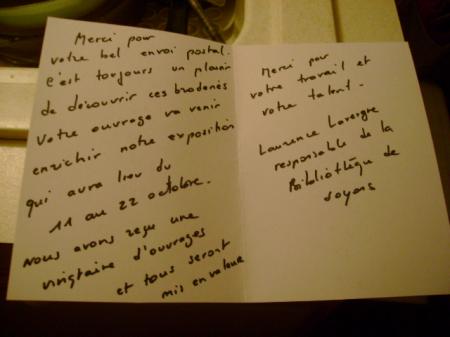 Merci pour
votre bel envoi postal.
c'est toujours un plaisir
de découvrir ces broderies
Votre ouvrage va venir
enrichir notre exposition
qui aura lieu du
11 au 22 octobre.
Nous avons reçu une
vingtaine d'ouvrages
et tous seront
mis en valeur
Merci pour
votre travail et
votre talent.
Laurence Lavergne
responsable de la
Bibliothèque de
Soyons